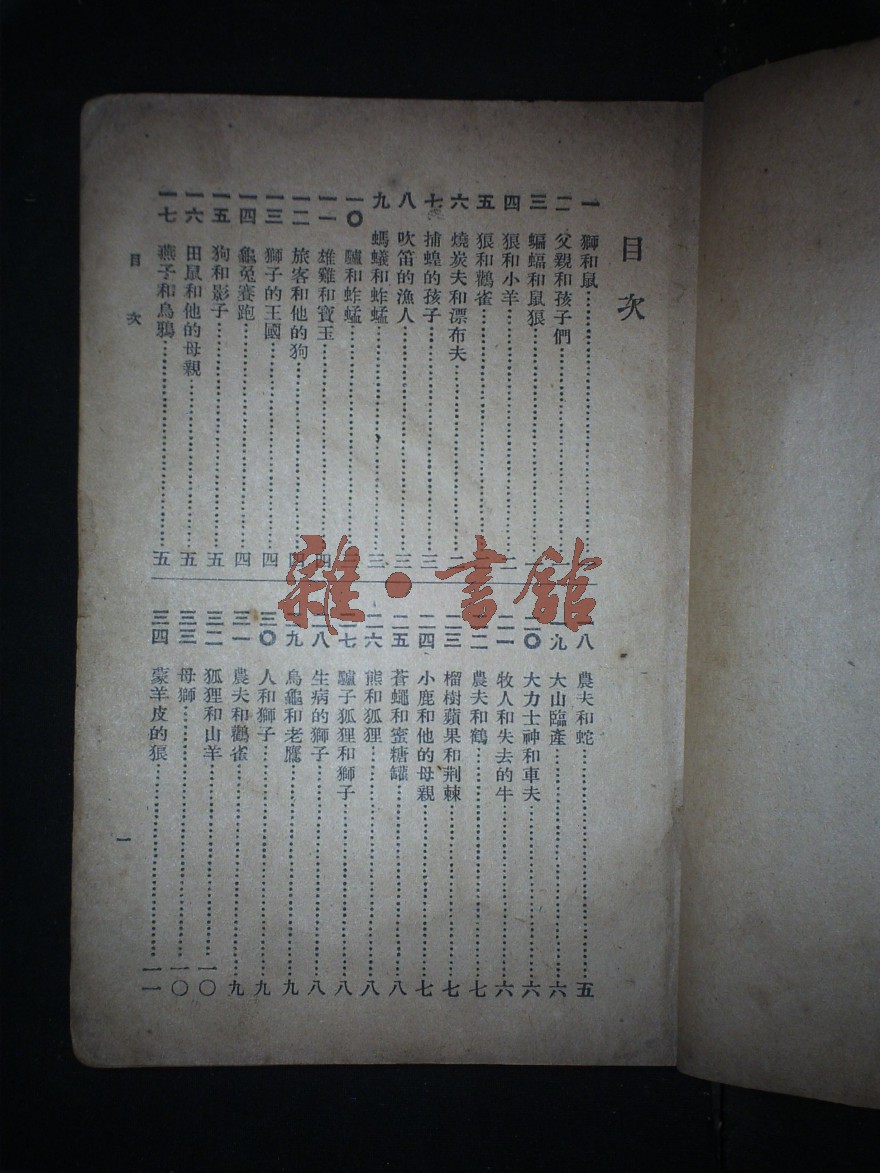 目次
一 獅和鼠
二 父親和孩子們
三 蝙蝠和鼠狼
四 狼和小羊
五 狼和鸛雀
六 燒炭夫和漂布夫
七 捕蝗的孩子 三
八 吹笛的漁人 三
九 螞蟻和蚱蜢 三
一〇 驢和蚱蜢
一一 雄雞和寶玉 四
一二 旅客和他的狗 四
一三 獅子的王國 四
一四 龜兔賽跑 四
一五 狗和影子 五
一六 田鼠和他的母親 五
一七 燕子和烏鴉 五
八 農夫和蛇 五
九 大山臨產 六
二〇 大力士神和車夫 六
二一 牧人和失去的牛 六
二二 農夫和鶴 七
二三 榴樹蘋果和荆棘 七
二四 小鹿和他的母親 七
二五 蒼蠅和蜜糖罐 八
二六 熊和狐狸 八
二七 驢子狐狸和獅子 八
二八 生病的獅子 八
二九 烏龜和老鷹 九
三〇 人和獅子 九
三一 農夫和鸛雀 九
三二 狐狸和山羊 一〇
三三 母獅 一〇
三四 蒙羊皮的狼 一一
目次
一
雜·書館